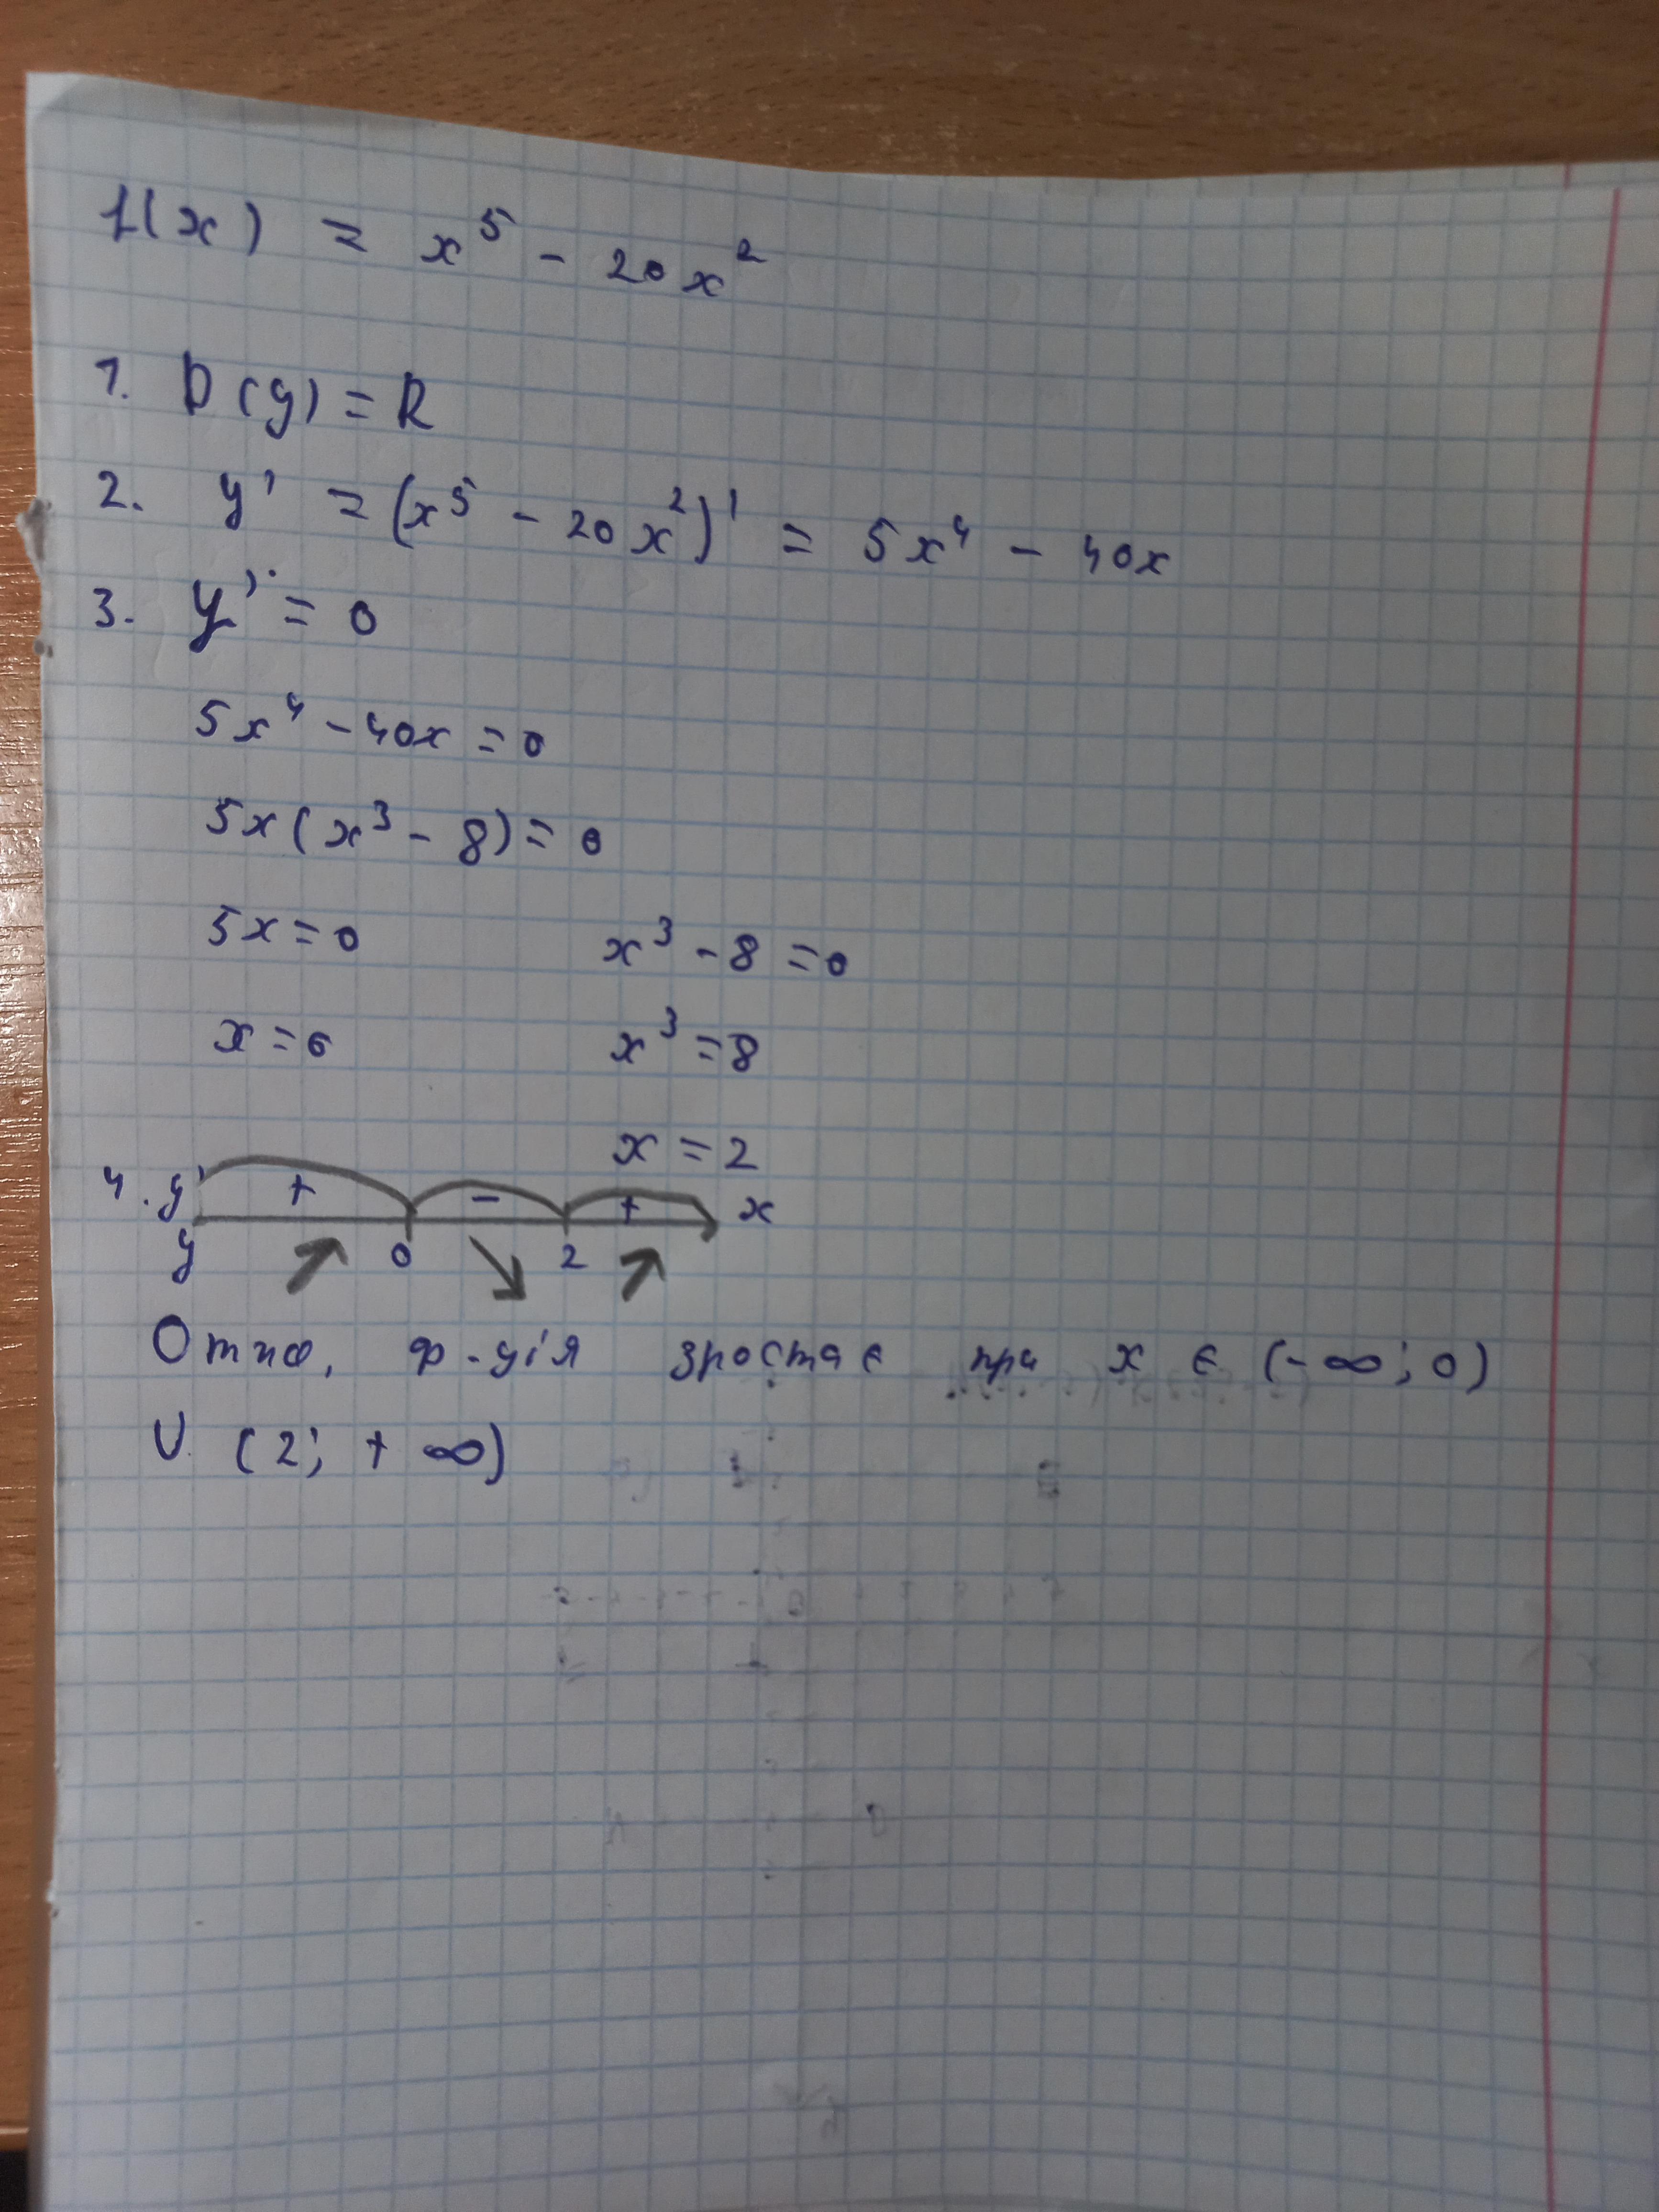 f(x) = x⁵ - 20x²
1. D(y) = R
2. y' = (x⁵ - 20x²)' = 5x⁴ - 40x
3. y' = 0
5x⁴ - 40x = 0
5x(x³ - 8) = 0
5x = 0 x³ - 8 = 0
x = 0 x³ = 8
x = 2
4. y' + - + x
y 0 2
Отже, ф-ція зростає при x є (-∞; 0)
U (2; +∞)